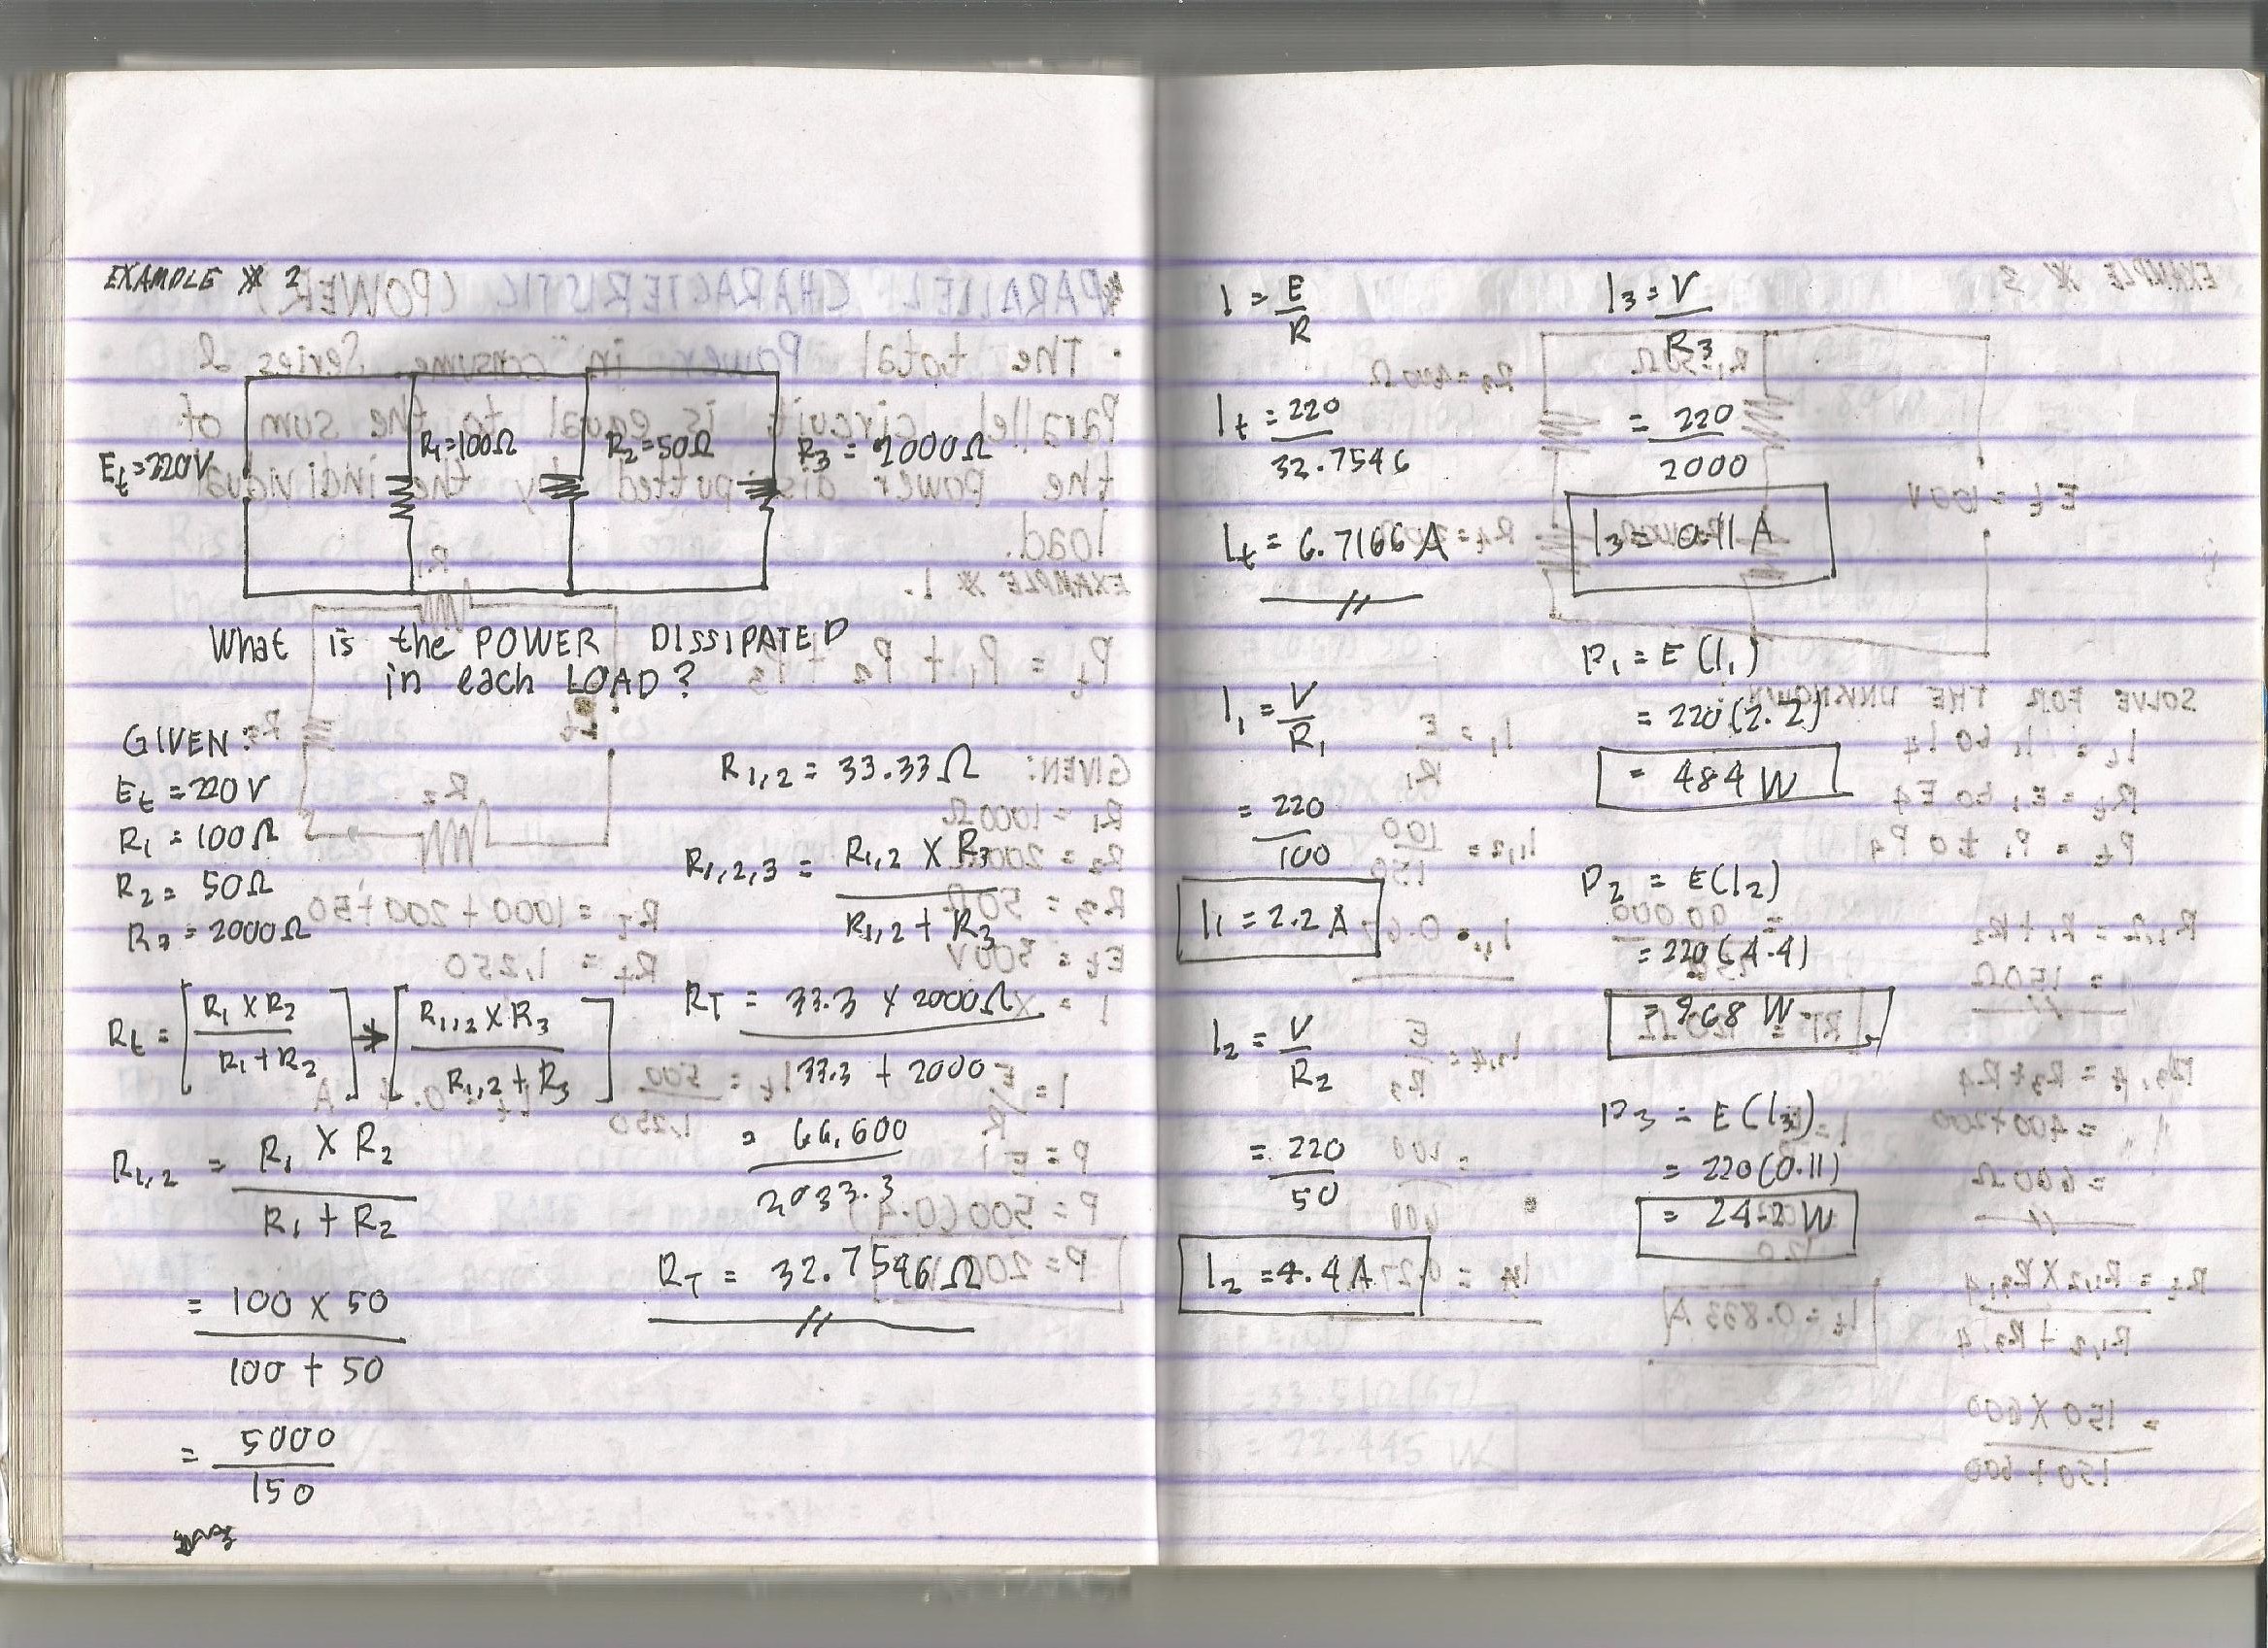 EXAMPLE # 2
Et = 220V
R1 = 100Ω
R2 = 50Ω
R3 = 2000Ω
What is the POWER DISSIPATED
in each LOAD?
GIVEN:
Et = 220V
R1 = 100Ω
R2 = 50Ω
R3 = 2000Ω
Rt = [R1 X R2 / R1 + R2] → [R1,2 X R3 / R1,2 + R3]
R1,2 = R1 X R2 / R1 + R2
= 100 X 50 / 100 + 50
= 5000 / 150
R1,2 = 33.33Ω
R1,2,3 = R1,2 X R3 / R1,2 + R3
RT = 33.3 X 2000Ω / 33.3 + 2000
= 66,600 / 2033.3
RT = 32.7546Ω
I = E / R
It = 220 / 32.7546
It = 6.7166 A
I1 = V / R1
= 220 / 100
I1 = 2.2 A
I2 = V / R2
= 220 / 50
I2 = 4.4 A
I3 = V / R3
= 220 / 2000
I3 = 0.11 A
P1 = E (I1)
= 220 (2.2)
= 484 W
P2 = E(I2)
= 220 (4.4)
= 968 W
P3 = E (I3)
= 220 (0.11)
= 24.2 W